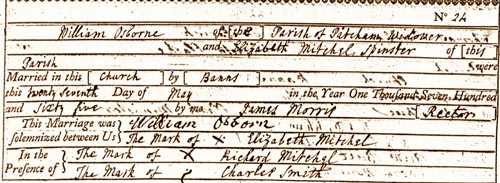 No 24
William Osborne of [the] Parish of Patcham Widower
and Elizabeth Mitchel Spinster of [this]
Parish were
Married in this [Church] by [Banns]
this twenty Seventh Day of May in the Year One Thousand Seven Hundred
and Sixty five by me James Morris [Rector]
This Marriage was solemnized between Us William Osborn
The Mark of X Elizabeth Mitchel
In the Presence of The Mark of X Richard Mitchel
The Mark of Charles Smith